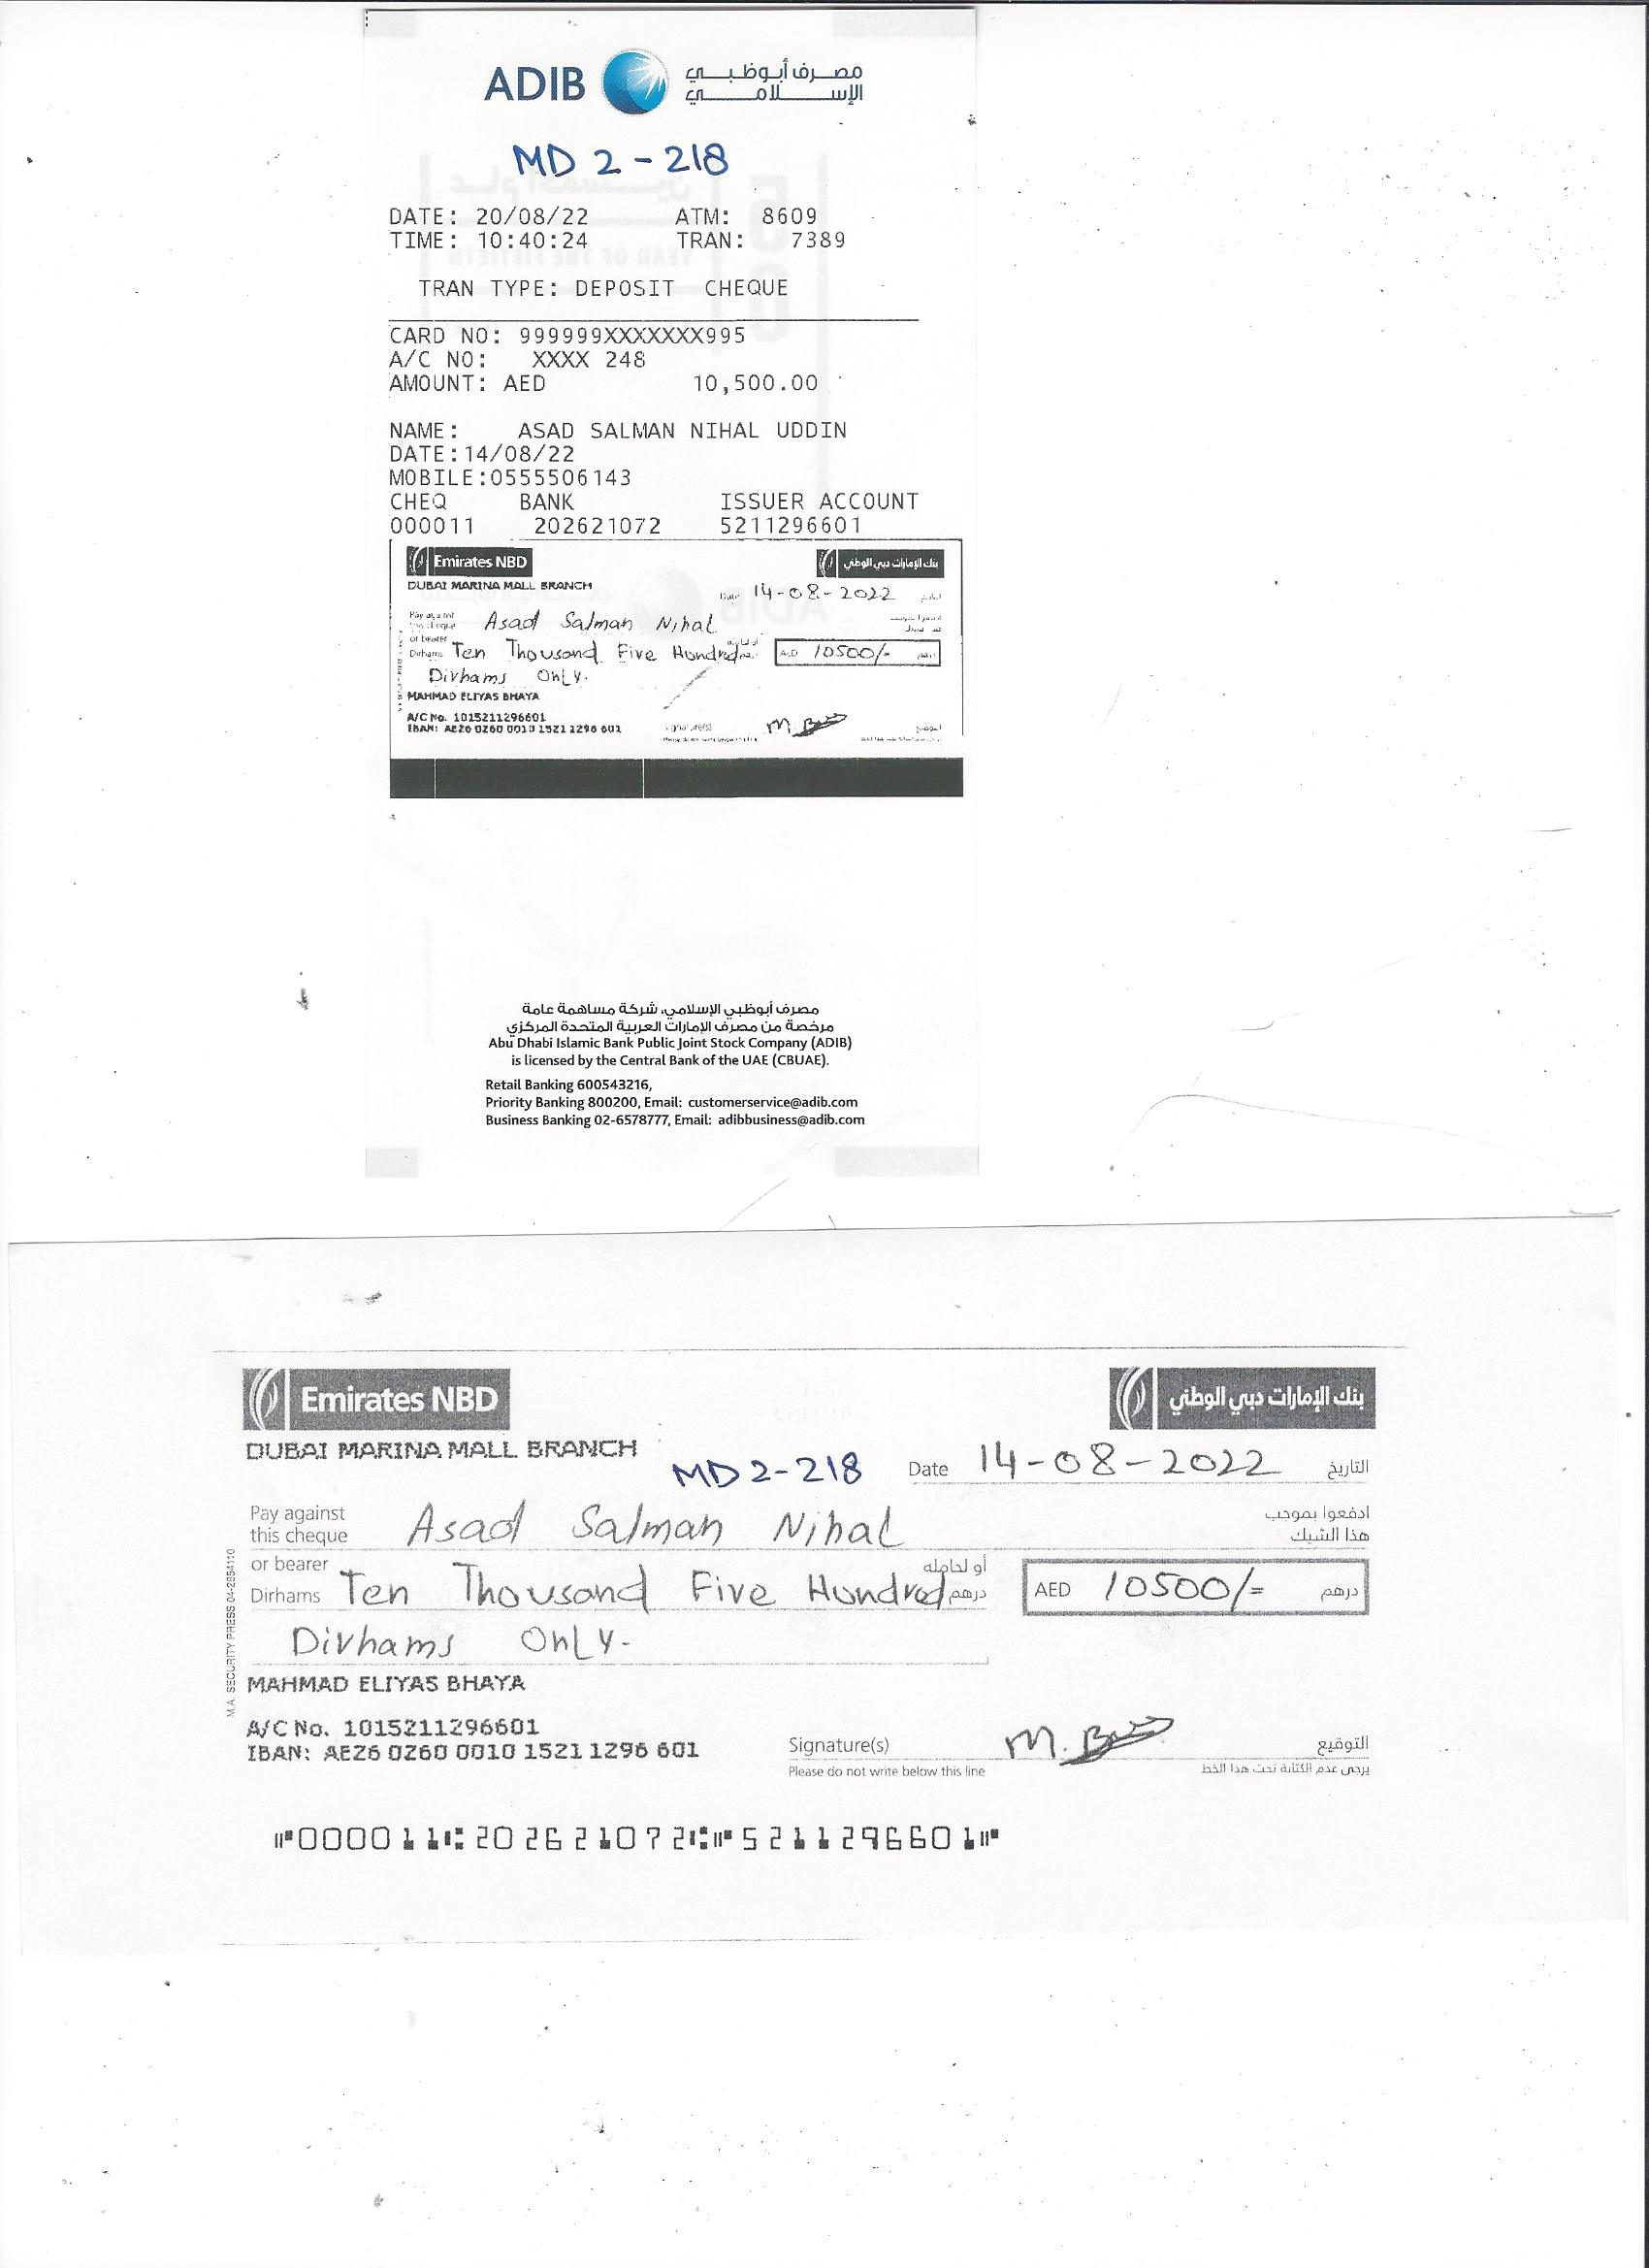 ADIB مصرف أبوظبي الإسلامي
MD 2 - 218
DATE: 20/08/22 ATM: 8609
TIME: 10:40:24 TRAN: 7389
TRAN TYPE: DEPOSIT CHEQUE
CARD NO: 999999XXXXXXX995
A/C NO: XXXX 248
AMOUNT: AED 10,500.00
NAME: ASAD SALMAN NIHAL UDDIN
DATE:14/08/22
MOBILE:0555506143
CHEQ BANK ISSUER ACCOUNT
000011 202621072 5211296601
Emirates NBD بنك الإمارات دبي الوطني
DUBAI MARINA MALL BRANCH
Date 14-08-2022 التاريخ
Pay against
this cheque Asad Salman Nihal
or bearer
Dirhams Ten Thousand Five Hundred AED 10500/- درهم
Dirhams Only.
MAHMAD ELIYAS BHAYA
A/C No. 1015211296601
IBAN: AE26 0260 0010 1521 1296 601 Signature(s) M. التوقيع
مصرف أبوظبي الإسلامي، شركة مساهمة عامة
مرخصة من مصرف الإمارات العربية المتحدة المركزي
Abu Dhabi Islamic Bank Public Joint Stock Company (ADIB)
is licensed by the Central Bank of the UAE (CBUAE).
Retail Banking 600543216,
Priority Banking 800200, Email: customerservice@adib.com
Business Banking 02-6578777, Email: adibbusiness@adib.com
Emirates NBD بنك الإمارات دبي الوطني
DUBAI MARINA MALL BRANCH
MD 2-218 Date 14-08-2022 التاريخ
Pay against ادفعوا بموجب
this cheque Asad Salman Nihal هذا الشيك
or bearer أو لحامله
Dirhams Ten Thousand Five Hundred درهم AED 10500/= درهم
Dirhams Only.
M.A. SECURITY PRESS 04-2854110
MAHMAD ELIYAS BHAYA
A/C No. 1015211296601
IBAN: AE26 0260 0010 1521 1296 601 Signature(s) M. التوقيع
Please do not write below this line يرجى عدم الكتابة تحت هذا الخط
⑈000011⑆202621072⑆⑈5211296601⑈